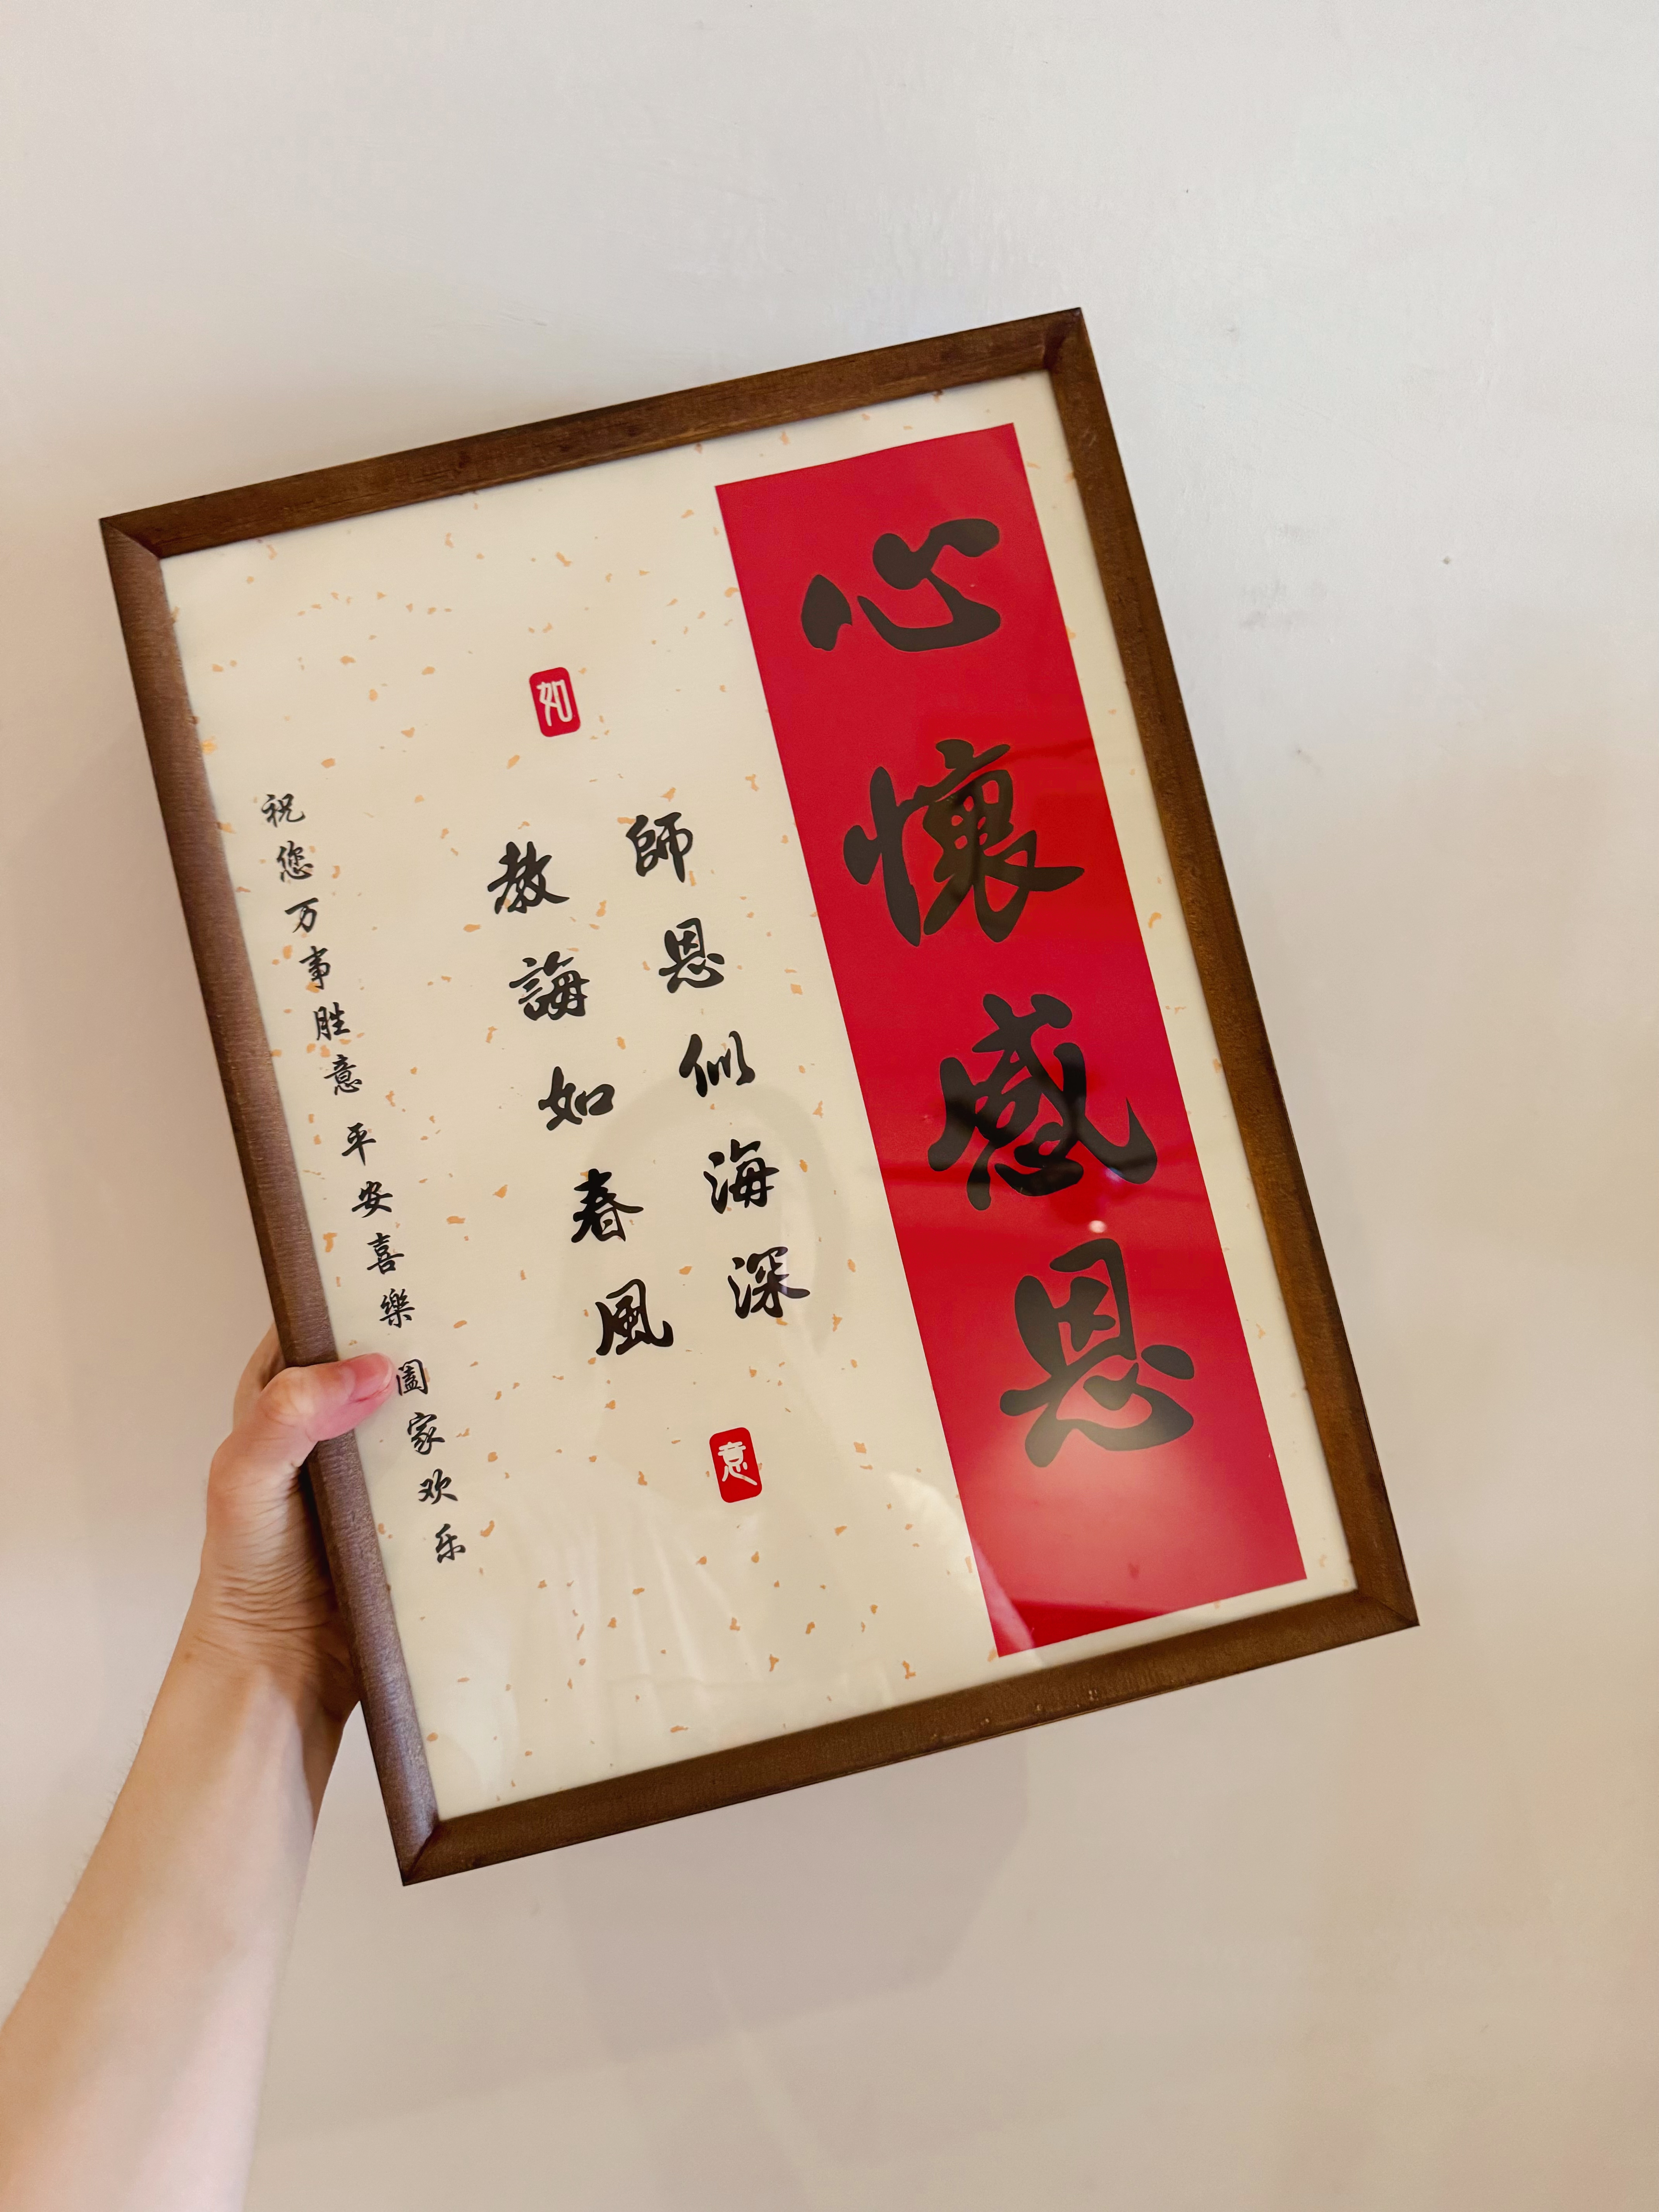 心懷感恩
師恩似海深
如
教誨如春風
意
祝您万事胜意 平安喜樂 阖家欢乐